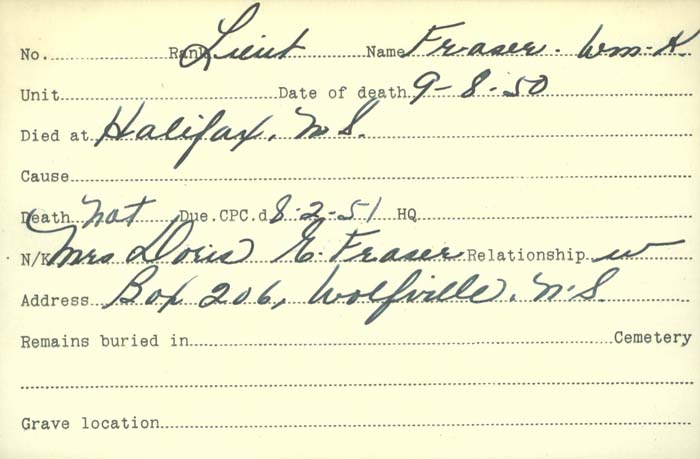 No. Rank Lieut Name Fraser. Wm. K.
Unit Date of death 9-8-50
Died at Halifax, N.S.
Cause
Death not Due.CPC.d 8-2-51 HQ
N/K Mrs Doris E. Fraser Relationship w
Address Box 206, Wolfville, N.S.
Remains buried in Cemetery
Grave location